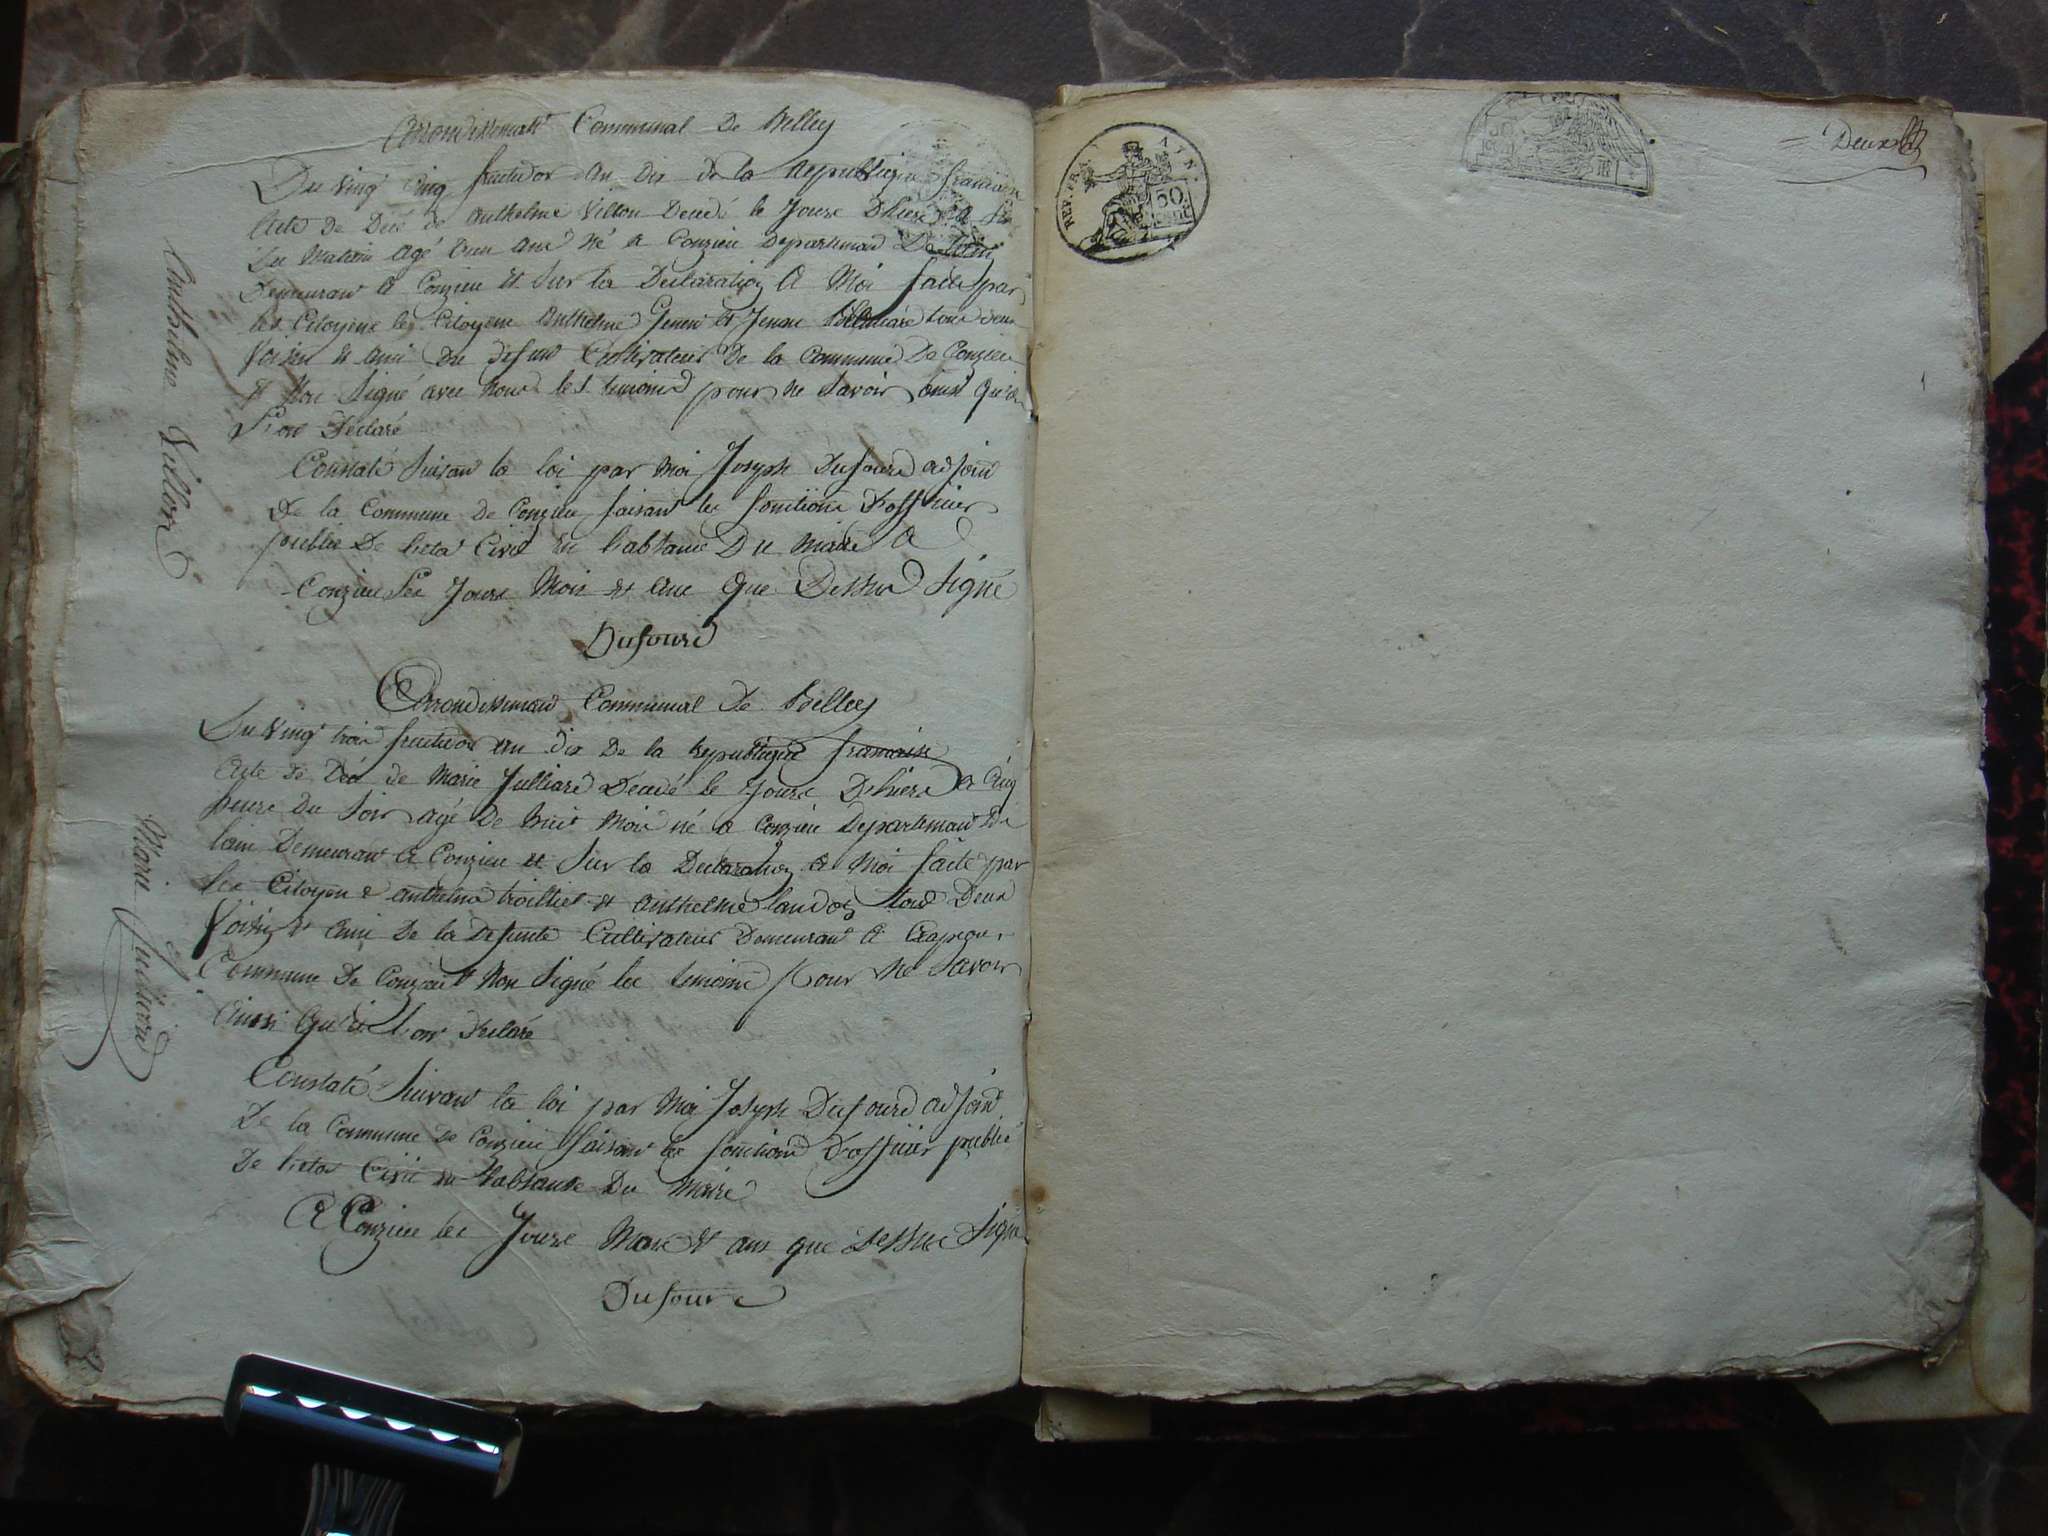 Arrondissement Communal De Belley
Du Ving Cinq fructidor an Dix de la republique francaise
Acte de Décé de anthelme Villon Decedé le Jour Dhiere a
Du Matain agé dun ans Né a Conzieu Departemant De Lain
Demeurant a Conzieu et Sur la Declaration A Moi faite par
les Citoyens les Citoyens Anthelme et tous deux
Voisin et ami du defunt Cultivateurs De la Commune De Conzieu
et Non Signé avec Nous les temoins pour ne Savoir ainsi qu'ils
l'ont Déclaré
Constaté Suivant la loi par Moi Joseph Dufourd adjoint
De la Commune de Conzieu faisant les fonctions D'officier
public De l'eta Civil en l'absance Du Maire A
Conzieu les Jours Mois et ans que Dessus Signé
Dufourd
Anthelme Villon
Arrondissemant Communal De Belley
Du Ving trois fructidor an dix De la republique francaise
Acte de Décé de Marie Julliard Decedé le Jour Dhiere a Cinq
heure Du Soir agé De huit Mois né a Conzieu Departemant De
lain Demeurant A Conzieu et Sur la Declaration A Moi faite par
les Citoyen anthelme et anthelme tous Deux
Voisin et ami De la defunte Cultivateurs Demeurant A
Commune De Conzieu et Non Signé les temoins pour Ne Savoir
ainsi qu'il l'ont declaré
Constaté Suivant la loi par Moi Joseph Dufourd adjoint
De la Commune de Conzieu faisant les fonctions D'officier public
De l'eta Civil en l'absance Du Maire
A Conzieu les Jours Mois et ans que dessus Signé
Dufourd
Marie Julliard
REP. FRA. AIN
50
CENT
= Deux